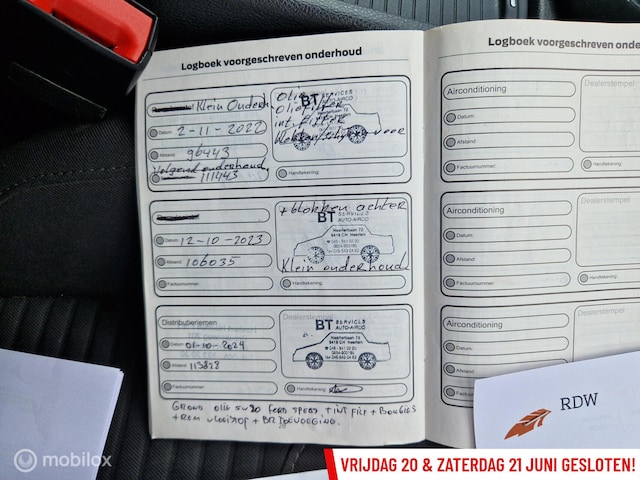 Logboek voorgeschreven onderhoud
Klein Onderh.
Datum: 2-11-2022
Afstand: 96443
Volgend onderhoud
111443
BT SERVICES
AUTO-AIRCO
Olie
Oliefilter
int. filter
voor
Handtekening:
Datum: 12-10-2023
Afstand: 106035
Factuurnummer:
+ blokken achter
BT SERVICES
AUTO-AIRCO
Klein onderhoud
Handtekening:
Distributieriemen
Datum: 01-10-2024
Afstand: 113822
Factuurnummer:
Dealerstempel
BT SERVICES
AUTO-AIRCO
Handtekening:
OLIE 5W20 FORD SPEC, + INT FILT + BOUGIES
+ REM VLOEISTOF +
Logboek voorgeschreven onde
Airconditioning
Datum:
Afstand:
Factuurnummer:
Dealerstempel
Handtekening:
Airconditioning
Datum:
Afstand:
Factuurnummer:
Dealerstempel
Handtekening:
Airconditioning
Datum:
Dealerstempel
RDW
mobilox
VRIJDAG 20 & ZATERDAG 21 JUNI GESLOTEN!